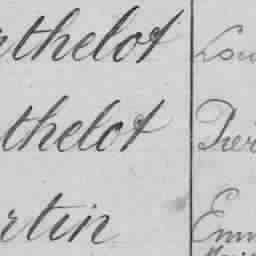 thelot Lou
thelot Pier
rtin Emm